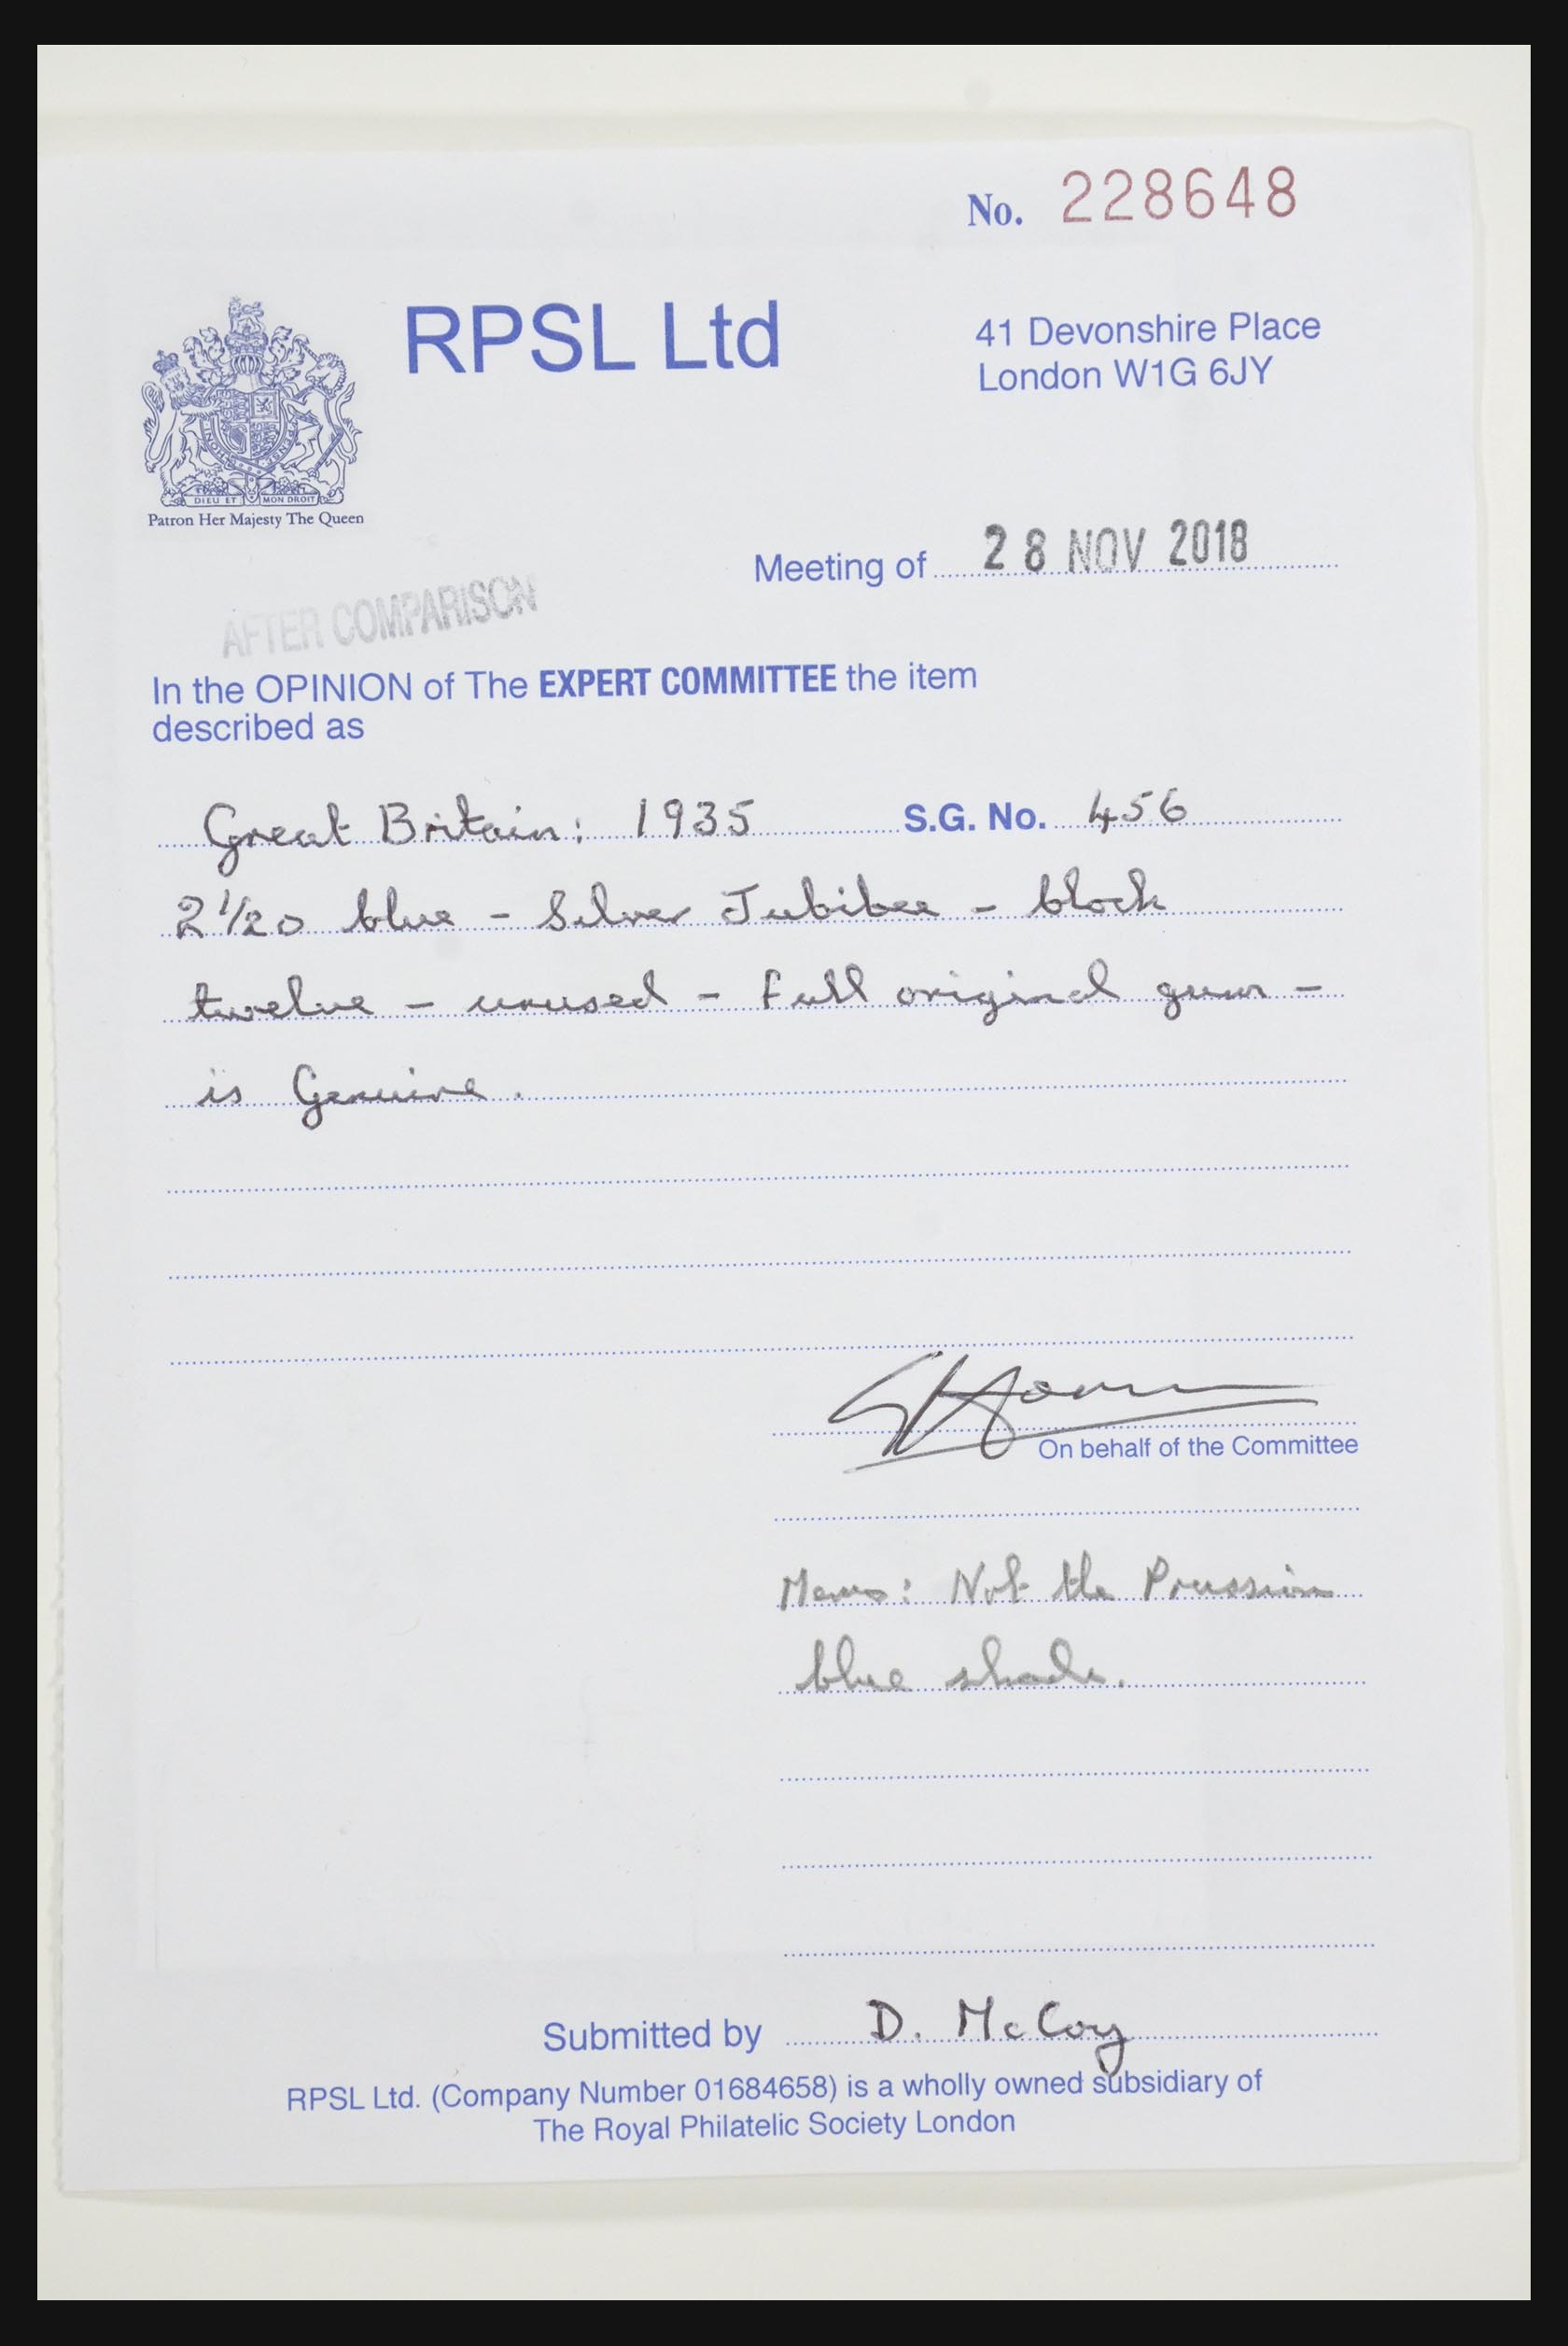 No. 228648
RPSL Ltd
41 Devonshire Place
London W1G 6JY
DIEU ET MON DROIT
Patron Her Majesty The Queen
Meeting of 28 NOV 2018
AFTER COMPARISON
In the OPINION of The EXPERT COMMITTEE the item
described as
Great Britain: 1935 S.G. No. 456
2 1/2D blue - Silver Jubilee - block
twelve - unused - full original gum -
is Genuine.
On behalf of the Committee
Memo: Not the Prussian
blue shade.
Submitted by D. McCoy
RPSL Ltd. (Company Number 01684658) is a wholly owned subsidiary of
The Royal Philatelic Society London